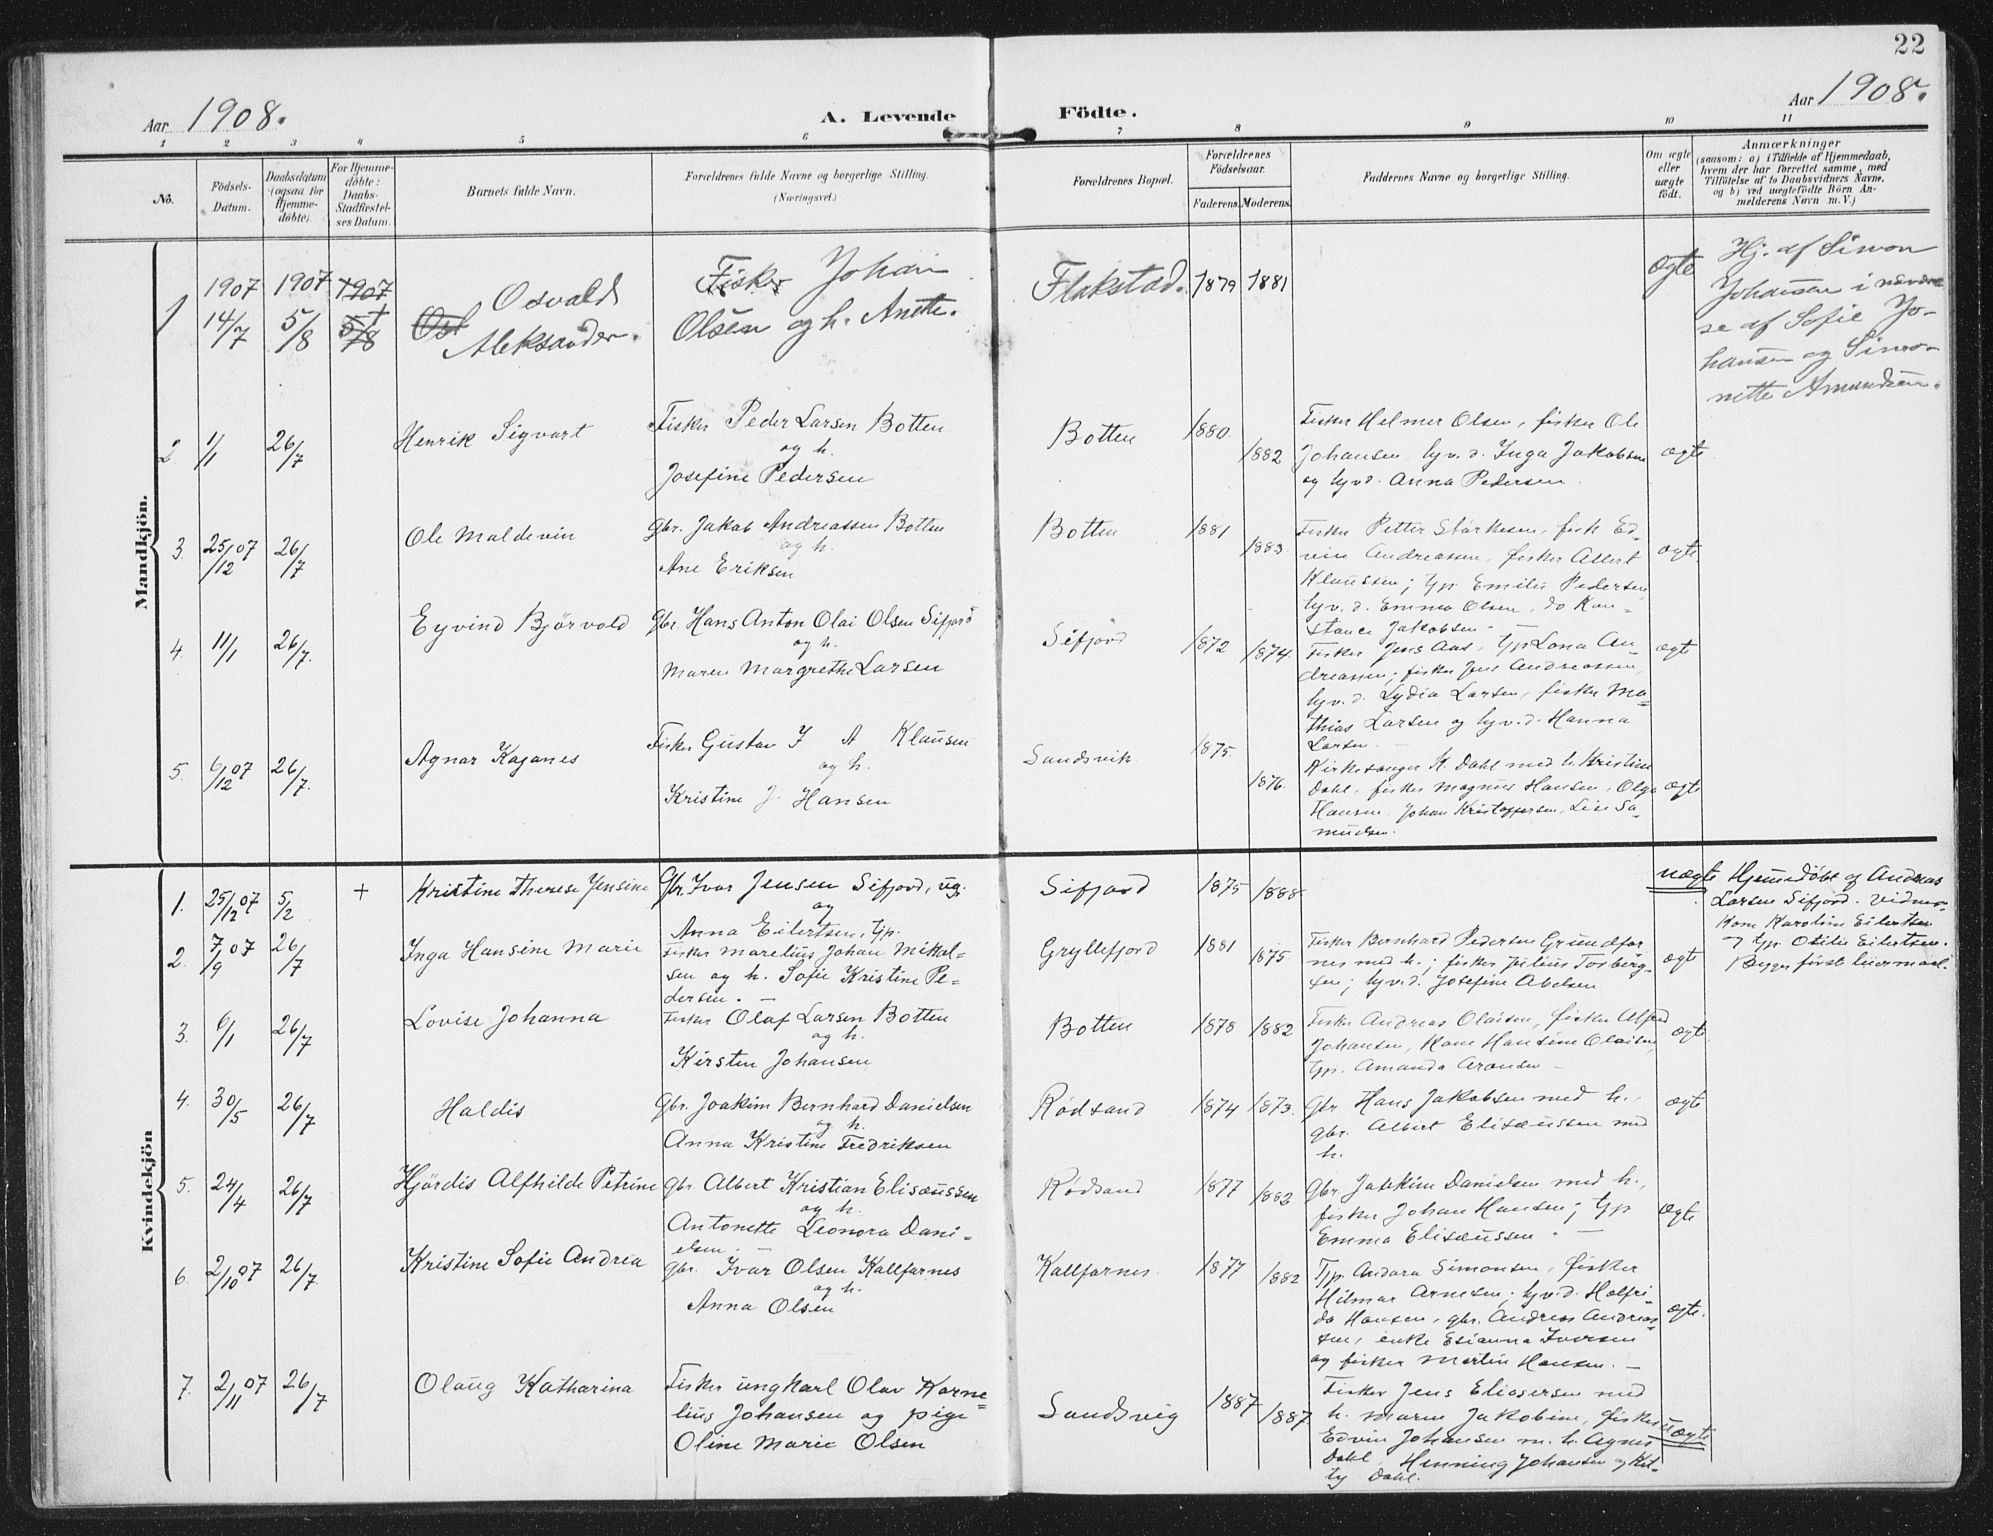 22
Aar 1908.
A. Levende
Födte.
Aar 1908.
1 2 3 4 5 6 7 8 9 10 11
No.
Födsels-
Datum.
Daabsdatum
(ogsaa for
Hjemme-
döbte).
For Hjemme-
döbte:
Daabs-
Stadfæstel-
ses Datum.
Barnets fulde Navn.
Forældrenes fulde Navne og borgerlige Stilling.
(Næringsvei.)
Forældrenes Bopæl.
Forældrenes
Födselsaar.
Faderens. Moderens.
Faddernes Navne og borgerlige Stilling.
Om ægte
eller
uægte
födt.
Anmærkninger
(saasom: a) i Tilfælde af Hjemmedaab,
hvem der har forrettet samme, med
Tilföielse af to Daabsvidners Navne.
og b) ved uegtefödte Börn An-
melderens Navn m. V.)
Mandkjön.
1 1907 14/7 1907 5/8 1907 5/8
Osvald
Aleksander.
Fisker Johan
Olsen og h. Anette.
Flakstad. 1879 1881
ægte
Hj. af Simon
Johansen i nærvæ
se af Sofie Jo-
hansen og Simo-
nette Amundsen.
2 1/1 26/7
Henrik Sigvart
Fisker Peder Larsen Botten
og h.
Josefine Pedersen
Botten 1880. 1882
Fisker Helmer Olsen, fisker Ole
Johansen, tyv. d. Inga Jakobsen
og tyvd. Anna Pedersen.
ægte
3. 25/12 07 26/7
Ole Maldevin
gbr. Jakob Andreassen Botten
og h.
Ane Eriksen
Botten 1881 1883
Fisker Petter Stärkesen, fisk Ed-
vin Andreassen, fisker Albert
Klaussen; tyv. d. Emilie Pedersen
tyv. d. Emma Olsen, do Kon-
stance Jakobsen.
ægte.
4. 11/1 26/7.
Eyvind Björvold
gbr. Hans Anton Olai Olsen Sifjord
og h.
Maren Margrethe Larsen
Sifjord 1872 1874.
Fisker Jens Aas, tyv. Lona An-
dreassen; fisker Jens Andreassen,
tyv. d. Lydia Larsen, fisker Ma-
thias Larsen og tyv. d. Hanna
Larsen.
ægte
5. 6/12 07 26/7.
Agnar Kaganes
Fisker Gustav J A Klausen
og h.
Kristine J. Hansen
Sandsvik. 1875. 1876.
Kirkesanger K. Dahl med h. Kristine
Dahl, fisker Magnus Hansen, Olga
Hansen, Johan Kristoffersen, Lise Sa-
muelsen.
ægte
Kvindekjön
1. 25/12 07 5/2 +
Kristine Therese Jensine
Gbr Ivar Jensen Sifjord, ug.
og
Anna Eilertsen, typ.
Sifjord 1875 1888
uægte
Hjemmedöbt af Andreas
Larsen Sifjord. Vidner
Kone Karoline Eilertsen
og typ. Otilie Eilertsen.
Begges först leiermaal.
2. 7/9 07 26/7
Inga Hansine Marie
Fisker Marelius Johan Mikal-
sen og h. Sofie Kristine Pe-
dersen. —
Gryllefjord 1881 1875
Fisker Bernhard Pedersen Grundfar-
nes med h.; fisker Julius Torberg-
sen; tyv. d. Josefine Abelsen
ægte
3. 6/1 26/7
Lovise Johanna
Fisker Olaf Larsen Botten
og h.
Kirsten Johansen
Botten 1878 1882
Fisker Andreas Olaisen, fisker Alfred
Johansen, Kone Hansine Olaisen,
typ. Amanda Aronsen —
ægte.
4. 30/5 26/7
Haldis
gbr. Joakim Bernhard Danielsen
og h.
Anna Kristine Fredriksen
Rödsand 1874 1873.
gbr Hans Jakobsen med h.,
gbr. Albert Elisæussen med
h.
ægte
5. 24/4 26/7
Hjördis Alfhilde Petrine
gbr. Albert Kristian Elisæussen
og h.
Antonette Leonora Dani-
elsen. —
Rödsand 1877 1882
gbr Joakim Danielsen med h.,
fisker Johan Hansen; typ
Emma Elisæussen. —
ægte
6. 2/10 07 26/7.
Kristine Sofie Andrea
gbr. Ivar Olsen Kalfarnes
og h.
Anna Olsen
Kalfarnes. 1877 1882
Typ. Andora Simonsen, fisker
Hilmar Arnesen, tyv. d. Halfri-
da Hansen, gbr. Andreas Andreas-
sen, enke Esianna Iversen
og fisker Martin Hansen. —
ægte.
7. 2/11 07 26/7
Olaug Katharina
Fisker ungkarl Olav Korne-
lius Johansen og pige
Oline Marie Olsen
Sandsvig 1887 1887.
Fisker Jens Eliasersen med
h. Maren Jakobine, fisker
Edvin Johansen m. h. Agnes
Dahl, Henning Johansen og Kit-
ty Dahl.
uægte